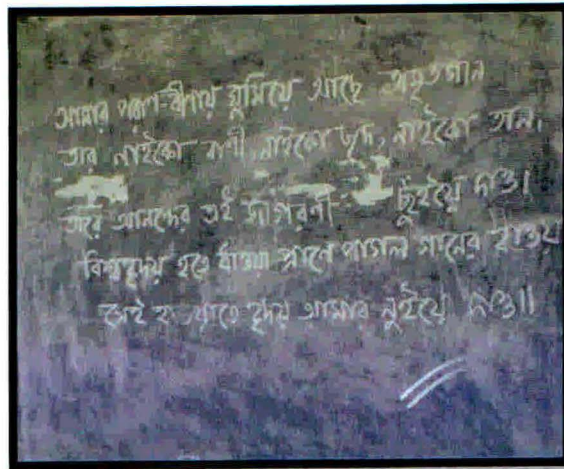 আমার পরাণ-বীণায় ঘুমিয়ে আছে অমৃতগান
তার নাইকো বাণী, নাইকো ছন্দ, নাইকো তান,
তারে আনন্দের এই জাগরণী ছুঁইয়ে দাও।
বিশ্বহৃদয় হতে ধাওয়া প্রাণে পাগল গানের হাওয়া
সেই হাওয়াতে হৃদয় আমার নুইয়ে দাও॥